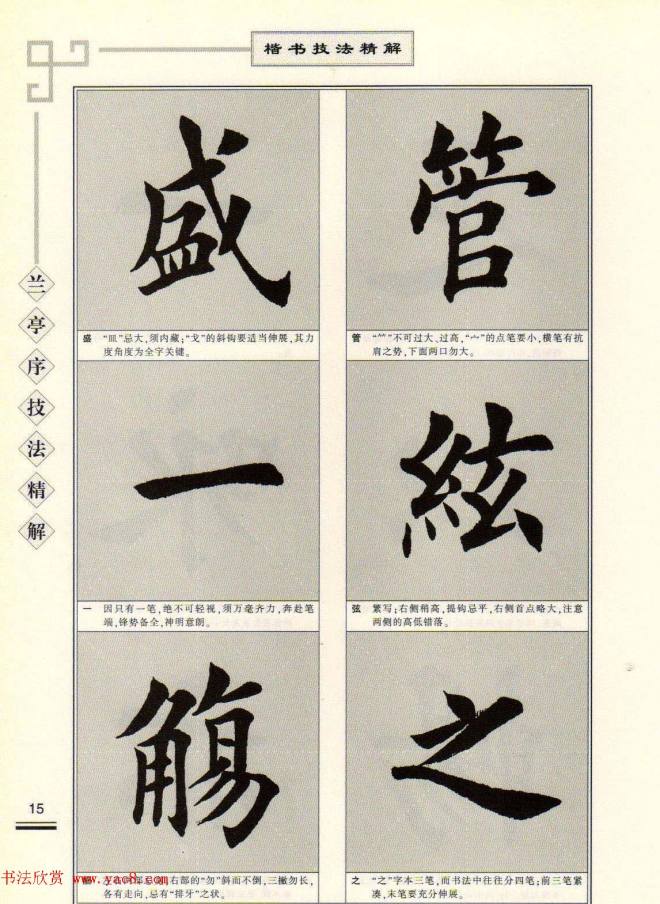 楷书技法精解
兰亭序技法精解
管
管 “⺮”不可过大、过高,“宀”的点笔要小,横笔有抗
肩之势,下面两口勿大。
絃
弦 繁写;右侧稍高,提钩忌平,右侧首点略大,注意
两侧的高低错落。
之
之 “之”字本三笔,而书法中往往分四笔;前三笔紧
凑,末笔要充分伸展。
盛
盛 “皿”忌大,须内藏;“戈”的斜钩要适当伸展,其力
度角度为全字关键。
一
一 因只有一笔,绝不可轻视,须万毫齐力,奔赴笔
端,锋势备全,神明意朗。
觞
右部的“勿”斜而不倒,三撇勿长,
各有走向,忌有“排牙”之状。
15
书法欣赏 www.yac8.com